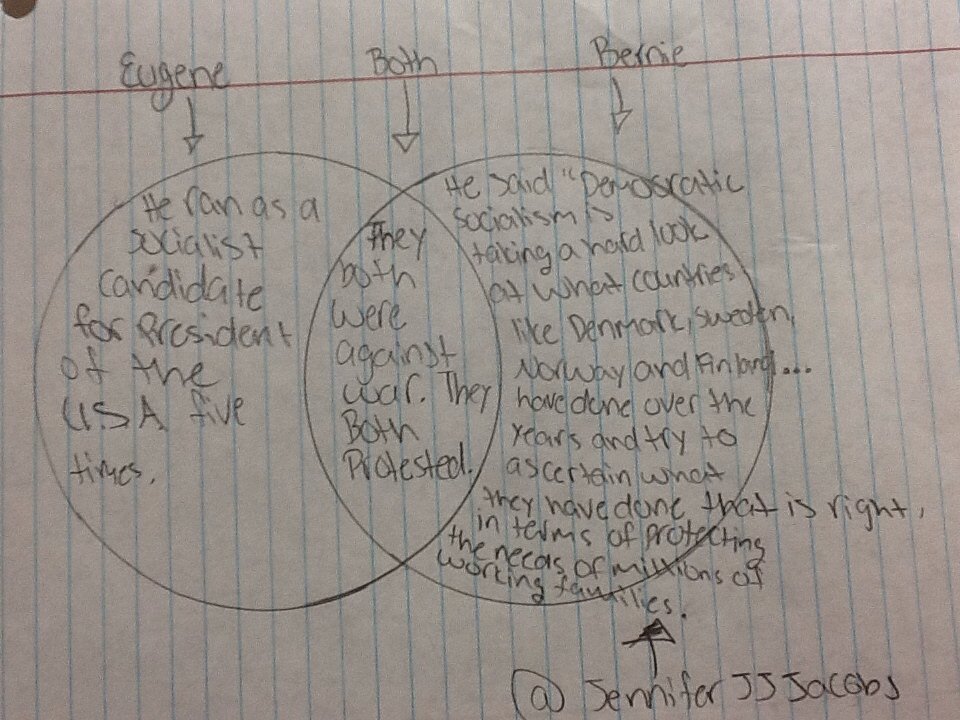 Eugene
Both
Bernie
He ran as a
socialist
candidate
for President
of the
USA five
times.
They
both
were
against
war. They
Both
Protested.
He said "Democratic
socialism is
taking a hard look
at what countries
like Denmark, Sweden,
Norway and Finland...
have done over the
years and try to
ascertain what
they have done that is right,
in terms of protecting
the needs of millions of
working families.
@ Jennifer JJ Jacobs